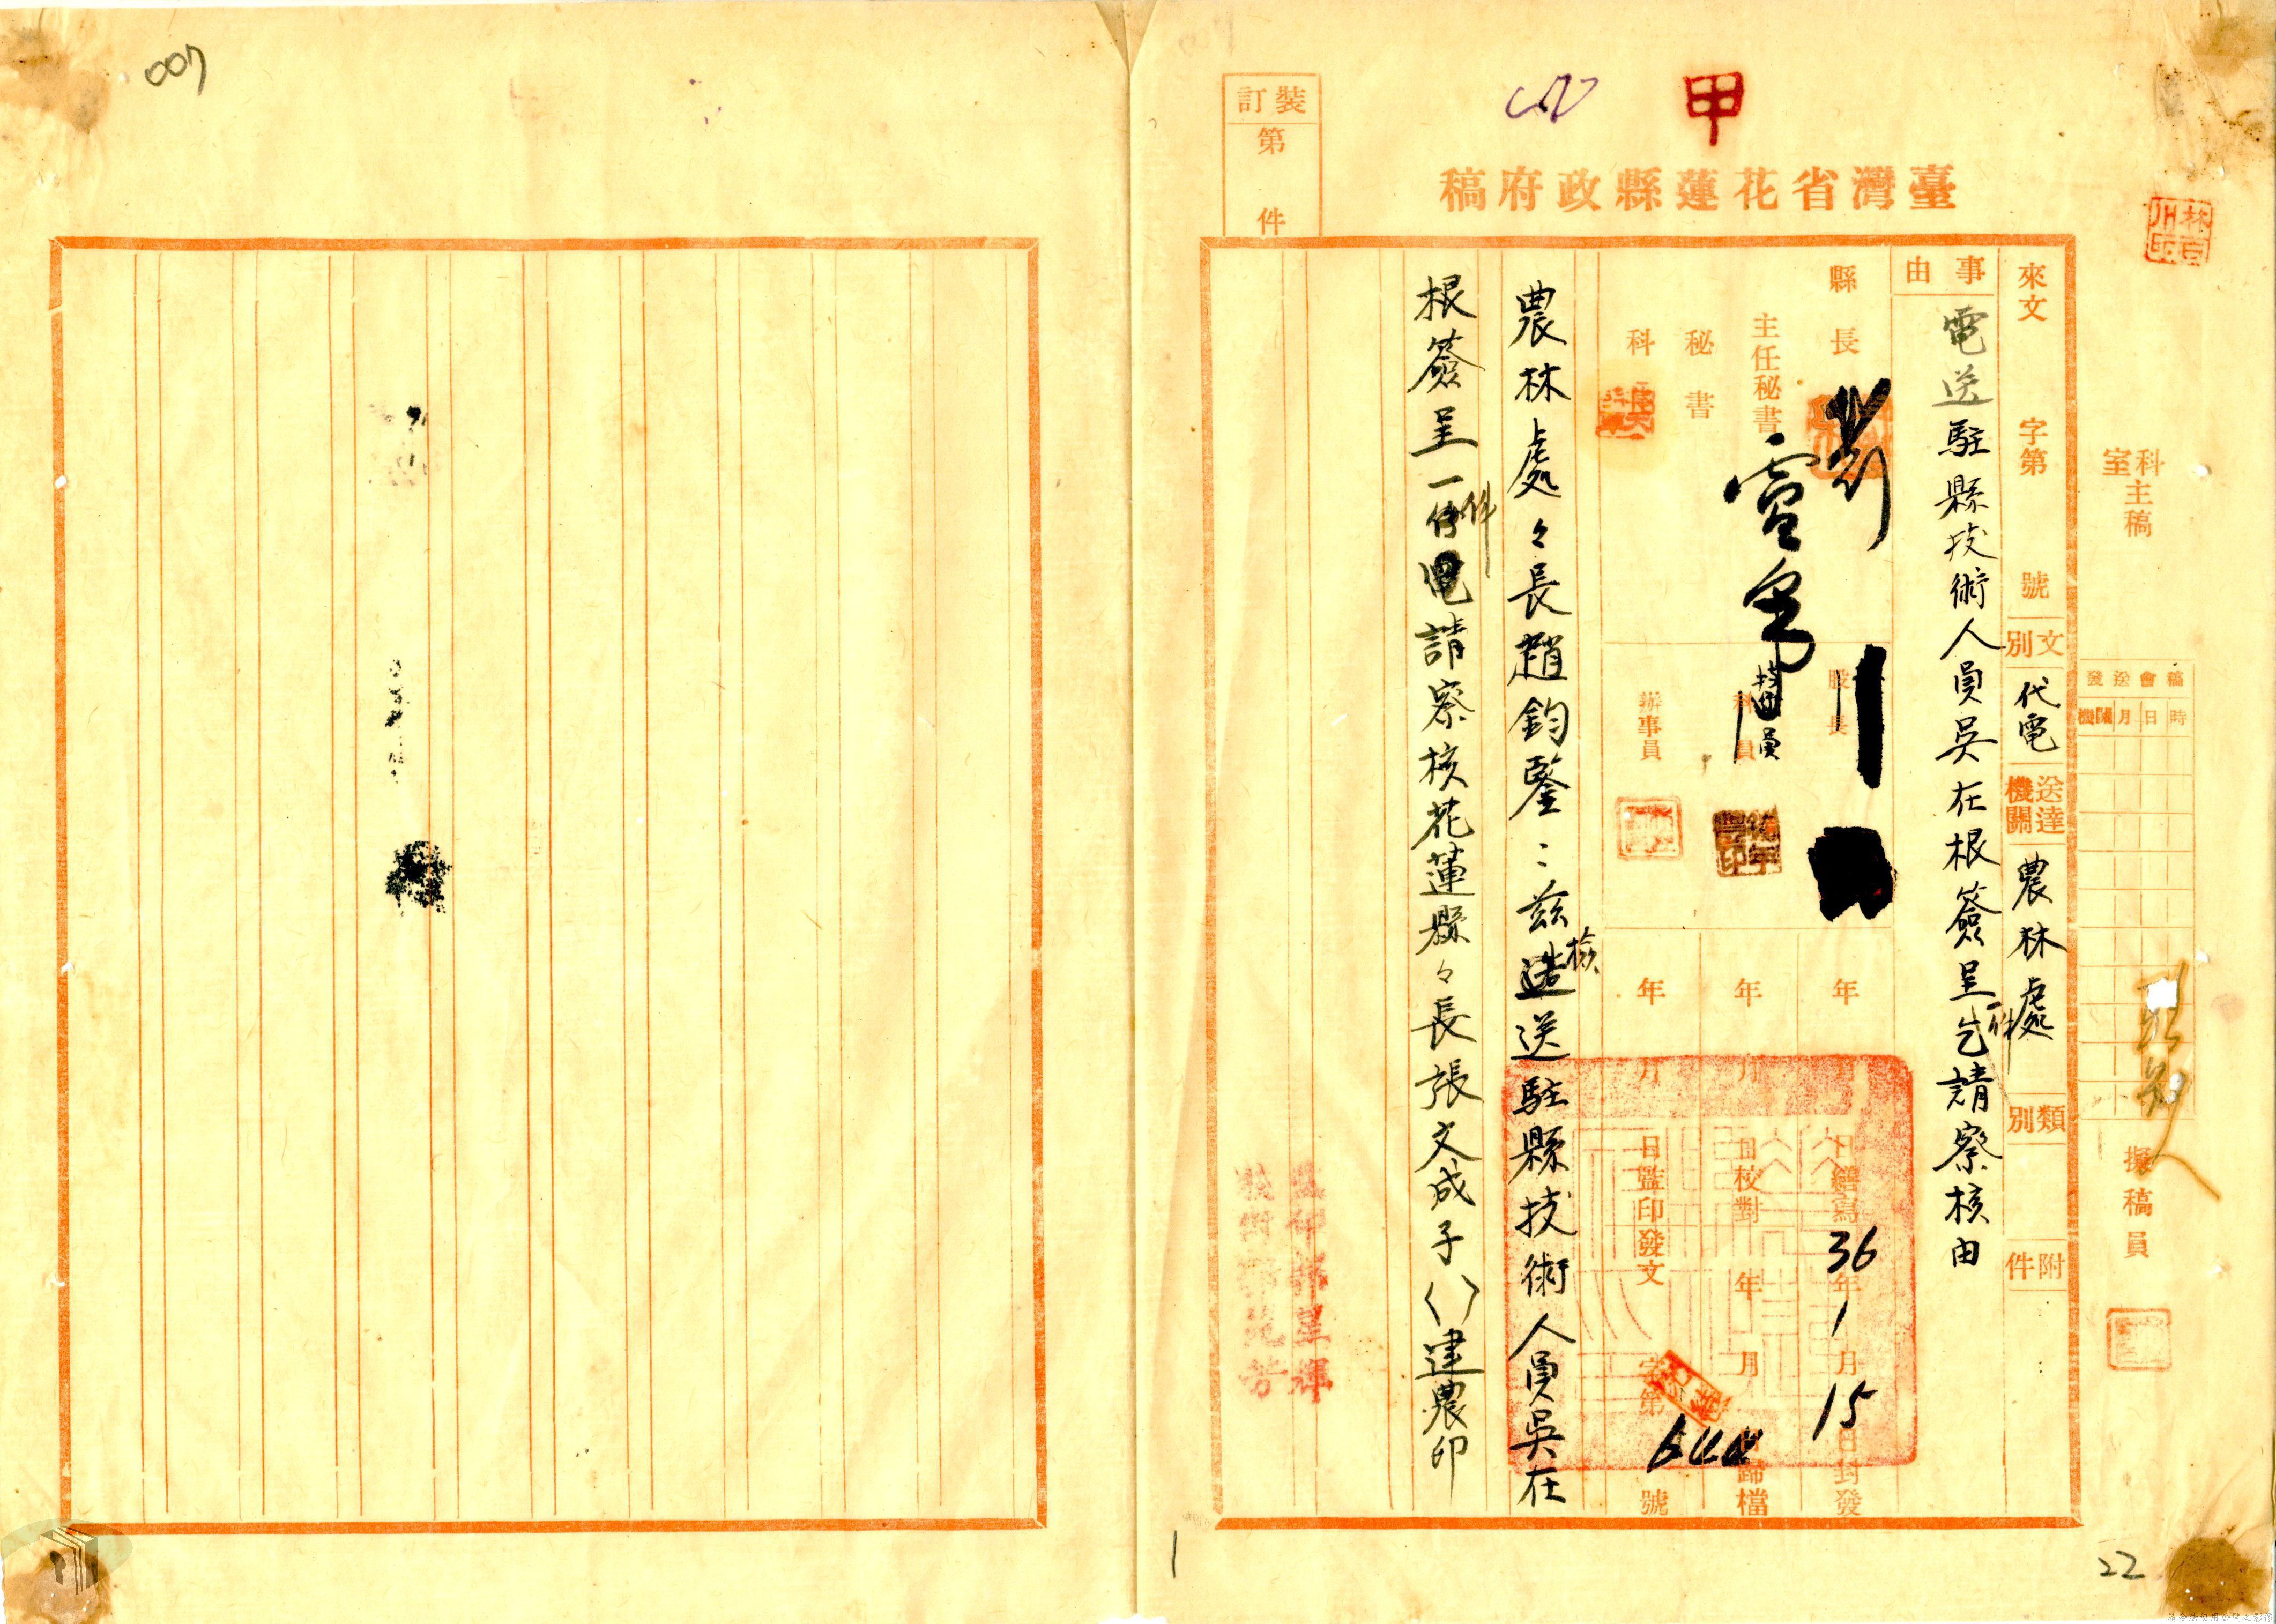 007
甲
臺灣省花蓮縣政府稿
裝訂
第 件
科室主稿
擬稿員
稿會送發
時日月機關
來文 字第 號
文別 代電
送達機關 農林處
類別
附件
事由
電送駐縣技術人員吳在根簽呈一件乞請察核由
縣長
主任秘書
秘書
科長
股長
科員
技員
辦事員
年 月 日繕寫
年 月 日校對
年 月 日監印
36年1月15日封發
年 月 日歸檔
發文 字第 號
農林處々長趙鈞鑒:茲檢送駐縣技術人員吳在
根簽呈一件電請察核花蓮縣々長張文成子()建農印
22